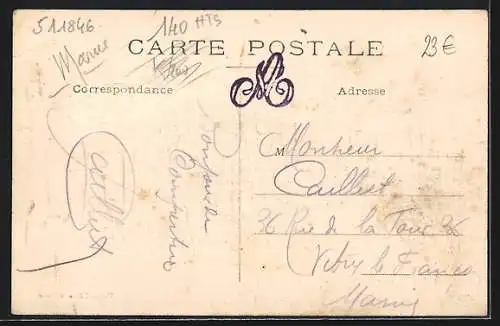 511846
140 HTS
Marne
CARTE POSTALE
23€
Correspondance
Adresse
M Monsieur
Cailliet
36 Rue de la Tour 36
Vitry le François
Marne
Cailliet